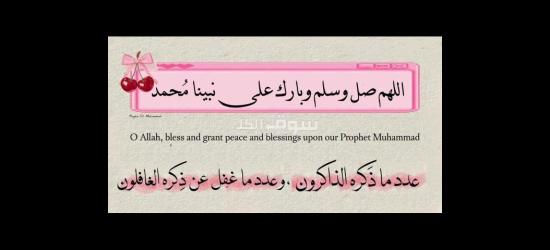 اللهم صل وسلم وبارك على نبينا مُحمد
O Allah, bless and grant peace and blessings upon our Prophet Muhammad
عدد ما ذَكره الذاكرون ، وعدد ما غفل عن ذِكره الغافلون